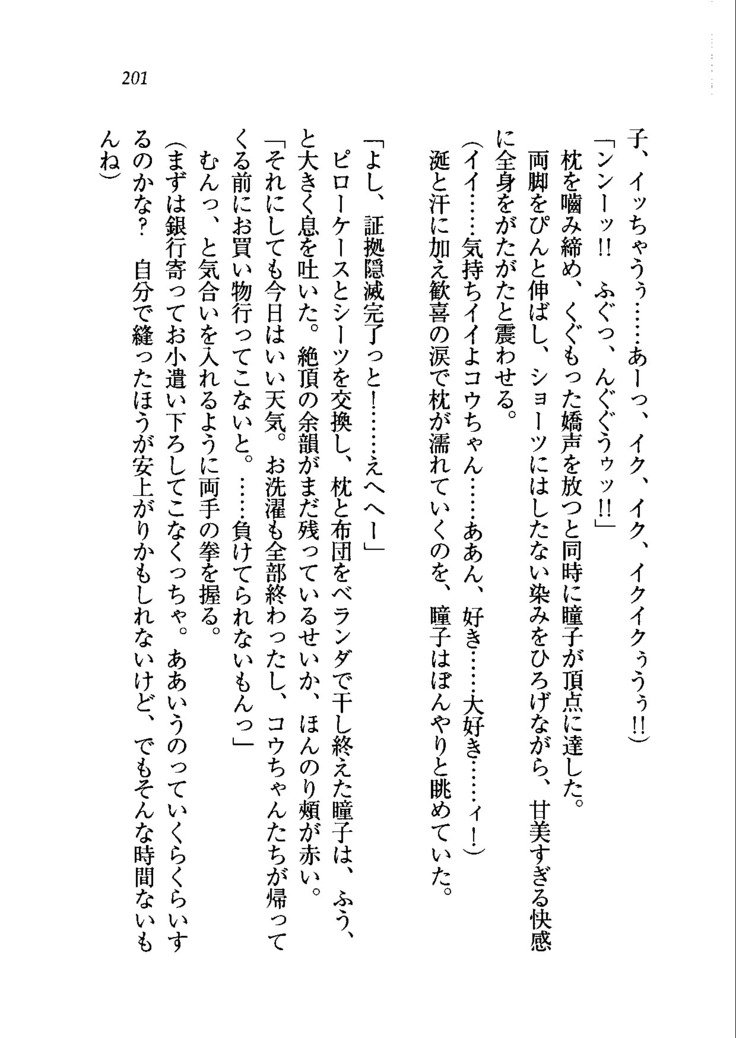 201
子、イッちゃうぅ……あーっ、イク、イク、イクイクぅうぅ!!）
「ンンーッ!!　ふぐっ、んぐぐうゥッ!!」
枕を嚙み締め、くぐもった嬌声を放つと同時に瞳子が頂点に達した。
両脚をぴんと伸ばし、ショーツにはしたない染みをひろげながら、甘美すぎる快感
に全身をがたがたと震わせる。
（イイ……気持ちイイよコウちゃん……ああん、好き……大好き……ィ！）
涎と汗に加え歓喜の涙で枕が濡れていくのを、瞳子はぼんやりと眺めていた。
「よし、証拠隠滅完了っと！……えへへー」
ピローケースとシーツを交換し、枕と布団をベランダで干し終えた瞳子は、ふう、
と大きく息を吐いた。絶頂の余韻がまだ残っているせいか、ほんのり頰が赤い。
「それにしても今日はいい天気。お洗濯も全部終わったし、コウちゃんたちが帰って
くる前にお買い物行ってこないと。……負けてられないもんっ」
むんっ、と気合いを入れるように両手の拳を握る。
（まずは銀行寄ってお小遣い下ろしてこなくっちゃ。ああいうのっていくらくらいす
るのかな？　自分で縫ったほうが安上がりかもしれないけど、でもそんな時間ないも
んね）